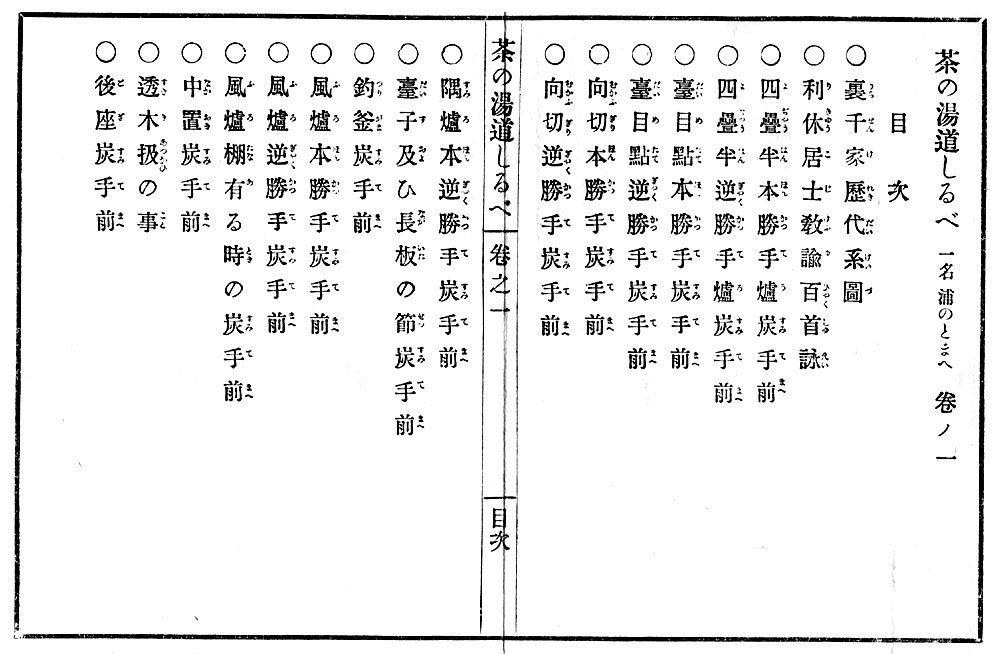 茶の湯道しるべ 一名 浦のとまへ 卷ノ一
目次
○裏千家歷代系圖
○利休居士教諭百首詠
○四疊半本勝手爐炭手前
○四疊半逆勝手爐炭手前
○臺目點本勝手炭手前
○臺目點逆勝手炭手前
○向切本勝手炭手前
○向切逆勝手炭手前
茶の湯道しるべ 卷之一 目次
○隅爐本逆勝手炭手前
○臺子及ひ長板の節炭手前
○釣釜炭手前
○風爐本勝手炭手前
○風爐逆勝手炭手前
○風爐棚有る時の炭手前
○中置炭手前
○透木扱の事
○後座炭手前